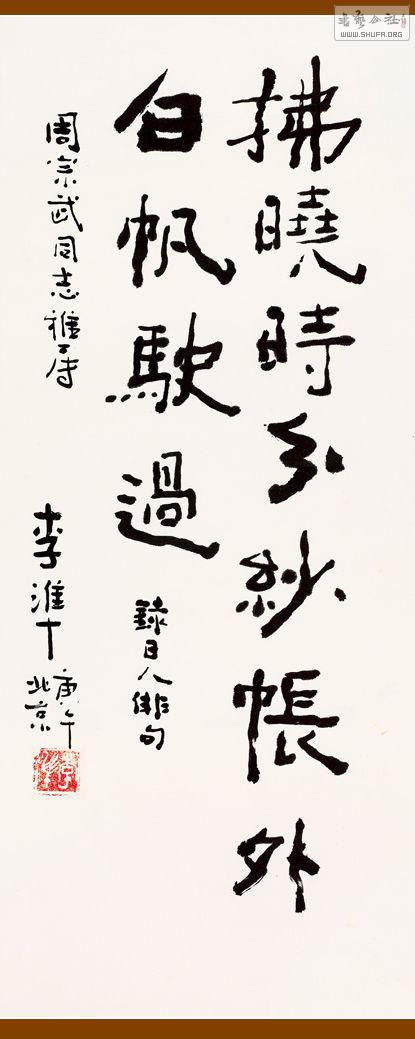 拂曉時分紗帳外
白帆駛過
錄日人俳句
周宗武同志雅屬
李准
庚午
北京
书艺公社
WWW.SHUFA.ORG